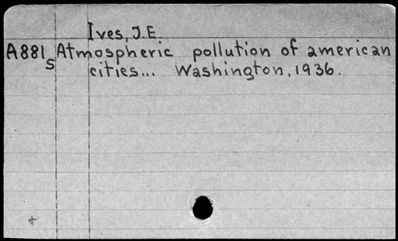 Ives, J.E.
A881 Atmospheric pollution of american
5 cities... Washington, 1936.